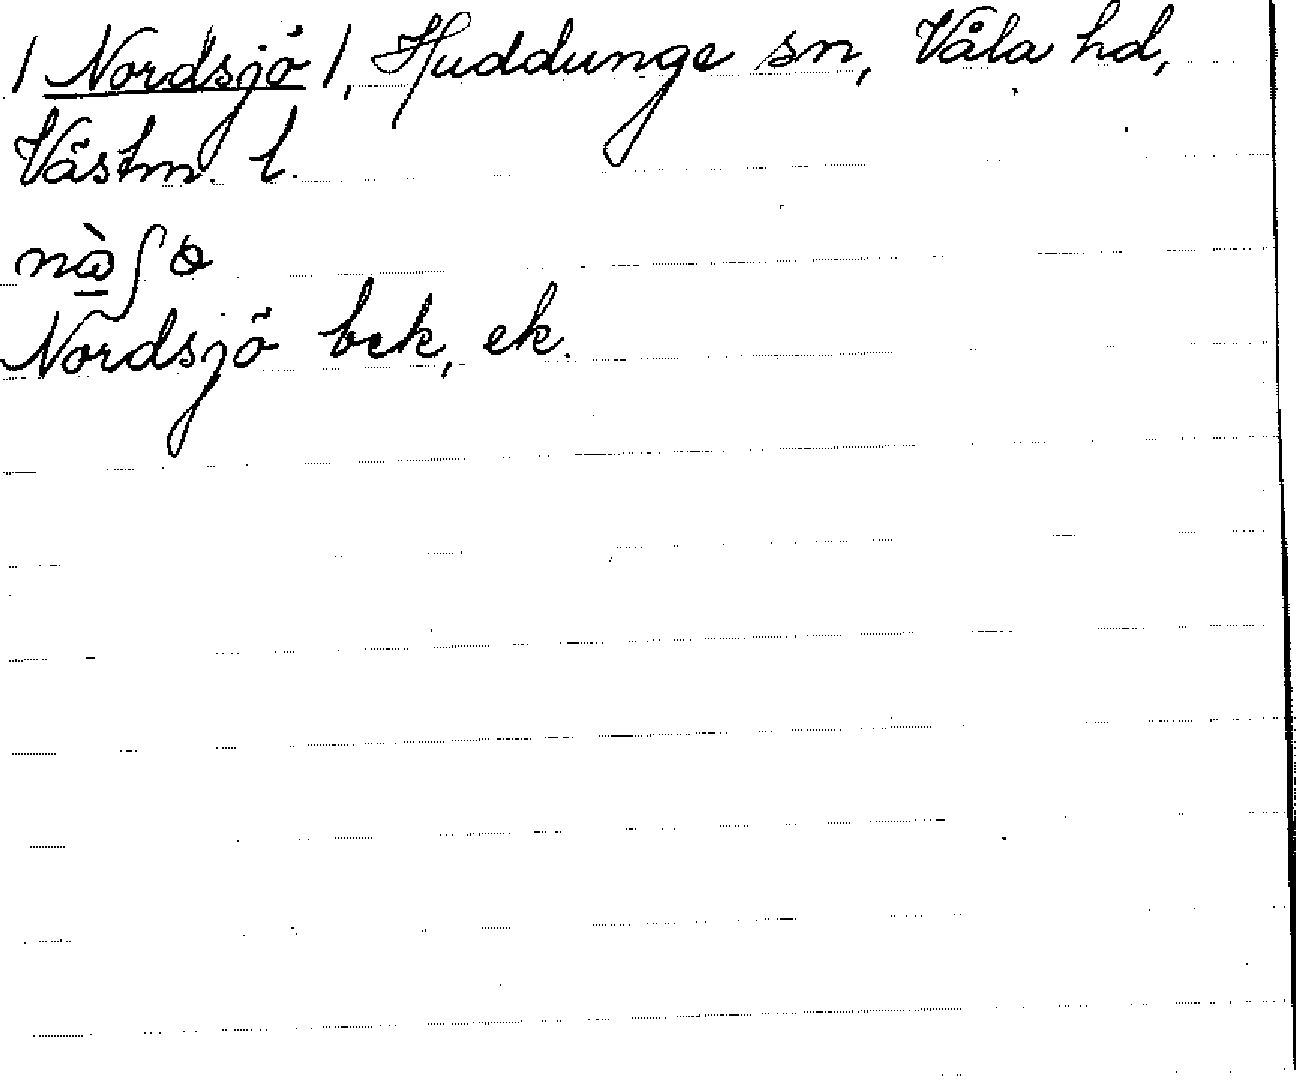 / Nordsjö /, Huddunge sn, Våla hd,
Västm. l.
Nordsjö bek, ek.